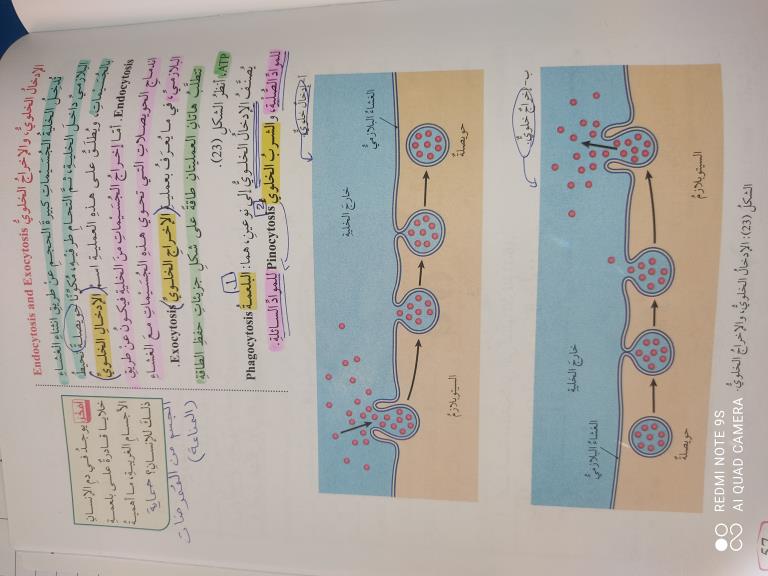 الإدخال الخلويّ، والإخراج الخلويّ Endocytosis and Exocytosis
تُدخِل الخلية الجُسَيمات كبيرة الحجم عن طريق انثناء الغشاء
البلازميّ داخل الخلية، ثمّ التحام طرفيه، مكوّنًا حويصلة تُحيط
بالجُسَيمات، ويُطلَق على هذه العملية اسم (الإدخال الخلويّ
Endocytosis). أمّا إخراج الجُسَيمات من الخلية فيكون عن طريق
اندماج الحويصلات التي تحوي هذه الجُسَيمات مع الغشاء
البلازميّ، في ما يُعرف بعملية (الإخراج الخلويّ Exocytosis).
تتطلّب هاتان العمليتان طاقة على شكل جزيئات حفظ الطاقة
ATP، أنظر الشكل (23).
يُصنَّف الإدخال الخلويّ إلى نوعين، هما: البلعمة
Phagocytosis للموادّ الصُّلبة، والشرب الخلويّ
Pinocytosis للموادّ السائلة.
1
2
أفكّر يوجد في دم الإنسان
خلايا قادرة على بلعمة
الأجسام الغريبة، ما أهمية
ذلك للإنسان؟ حماية
الجسم من الممرضات
(المناعة)
أ- إدخال خلويّ.
خارج الخلية
الغشاء البلازميّ
حويصلة
السيتوبلازم
ب- إخراج خلويّ.
خارج الخلية
الغشاء البلازميّ
السيتوبلازم
حويصلة
الشكل (23): الإدخال الخلويّ، والإخراج الخلويّ.
57
REDMI NOTE 9S
AI QUAD CAMERA